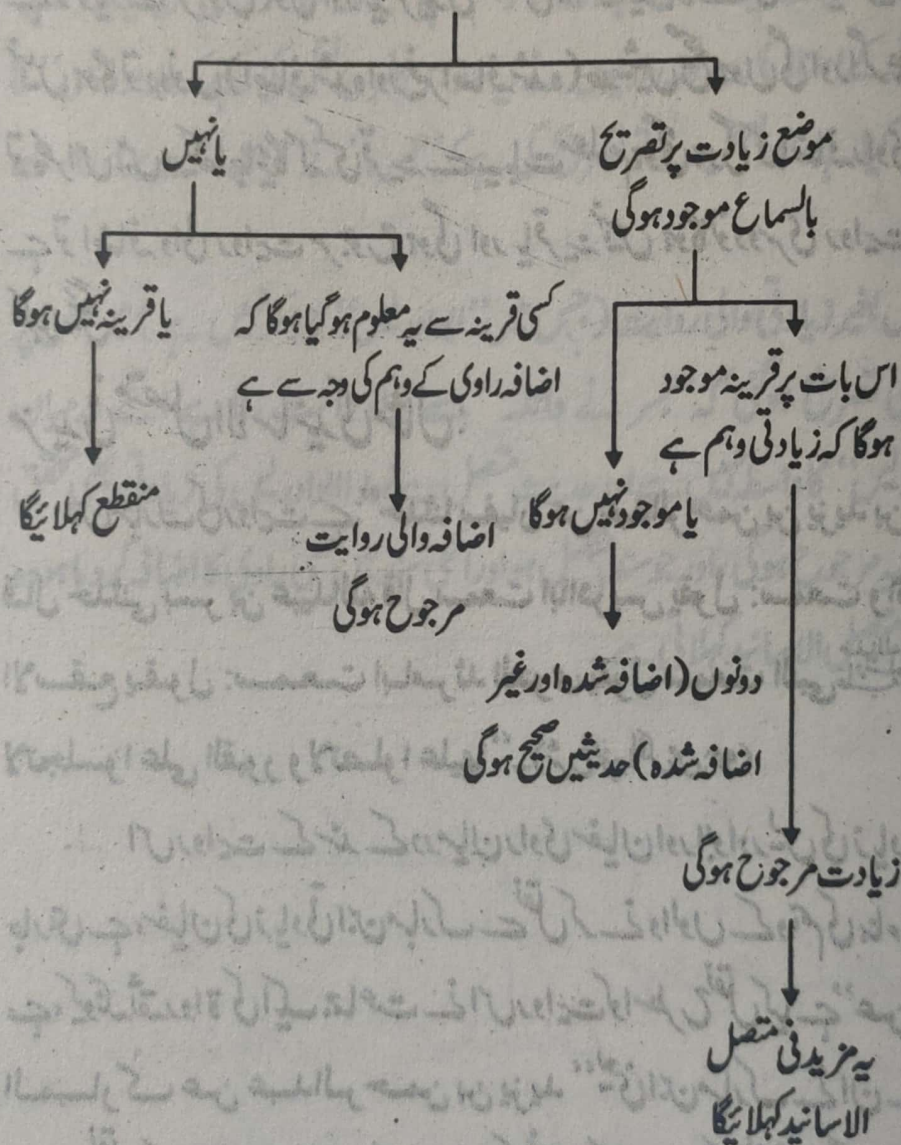 موضع زیادت پر تصریح
بالسماع موجود ہوگی
یا نہیں
اس بات پر قرینہ موجود
ہوگا کہ زیادتی وہم ہے
یا موجود نہیں ہوگا
کسی قرینہ سے یہ معلوم ہوگیا ہوگا کہ
اضافہ راوی کے وہم کی وجہ سے ہے
یا قرینہ نہیں ہوگا
منقطع کہلائیگا
اضافہ والی روایت
مرجوح ہوگی
دونوں (اضافہ شدہ اور غیر
اضافہ شدہ) حدیثیں صحیح ہوگی
زیادت مرجوح ہوگی
یہ مزید فی متصل
الاسانید کہلائیگا